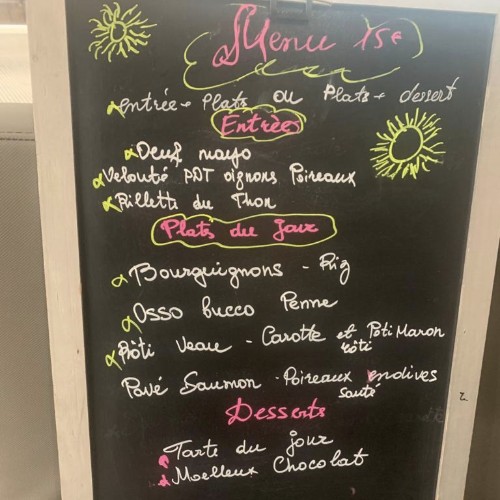 Menu 15€
entrée + Plats ou Plats + dessert
Entrées
Oeuf mayo
Velouté PDT oignons Poireaux
Rillette du Thon
Plats du Jour
Bourguignons - Riz
Osso bucco Penne
Rôti Veau - Carotte et PotiMaron
rôti
Pavé Saumon - Poireaux endives
sauté
Desserts
Tarte du jour
Moelleux Chocolat